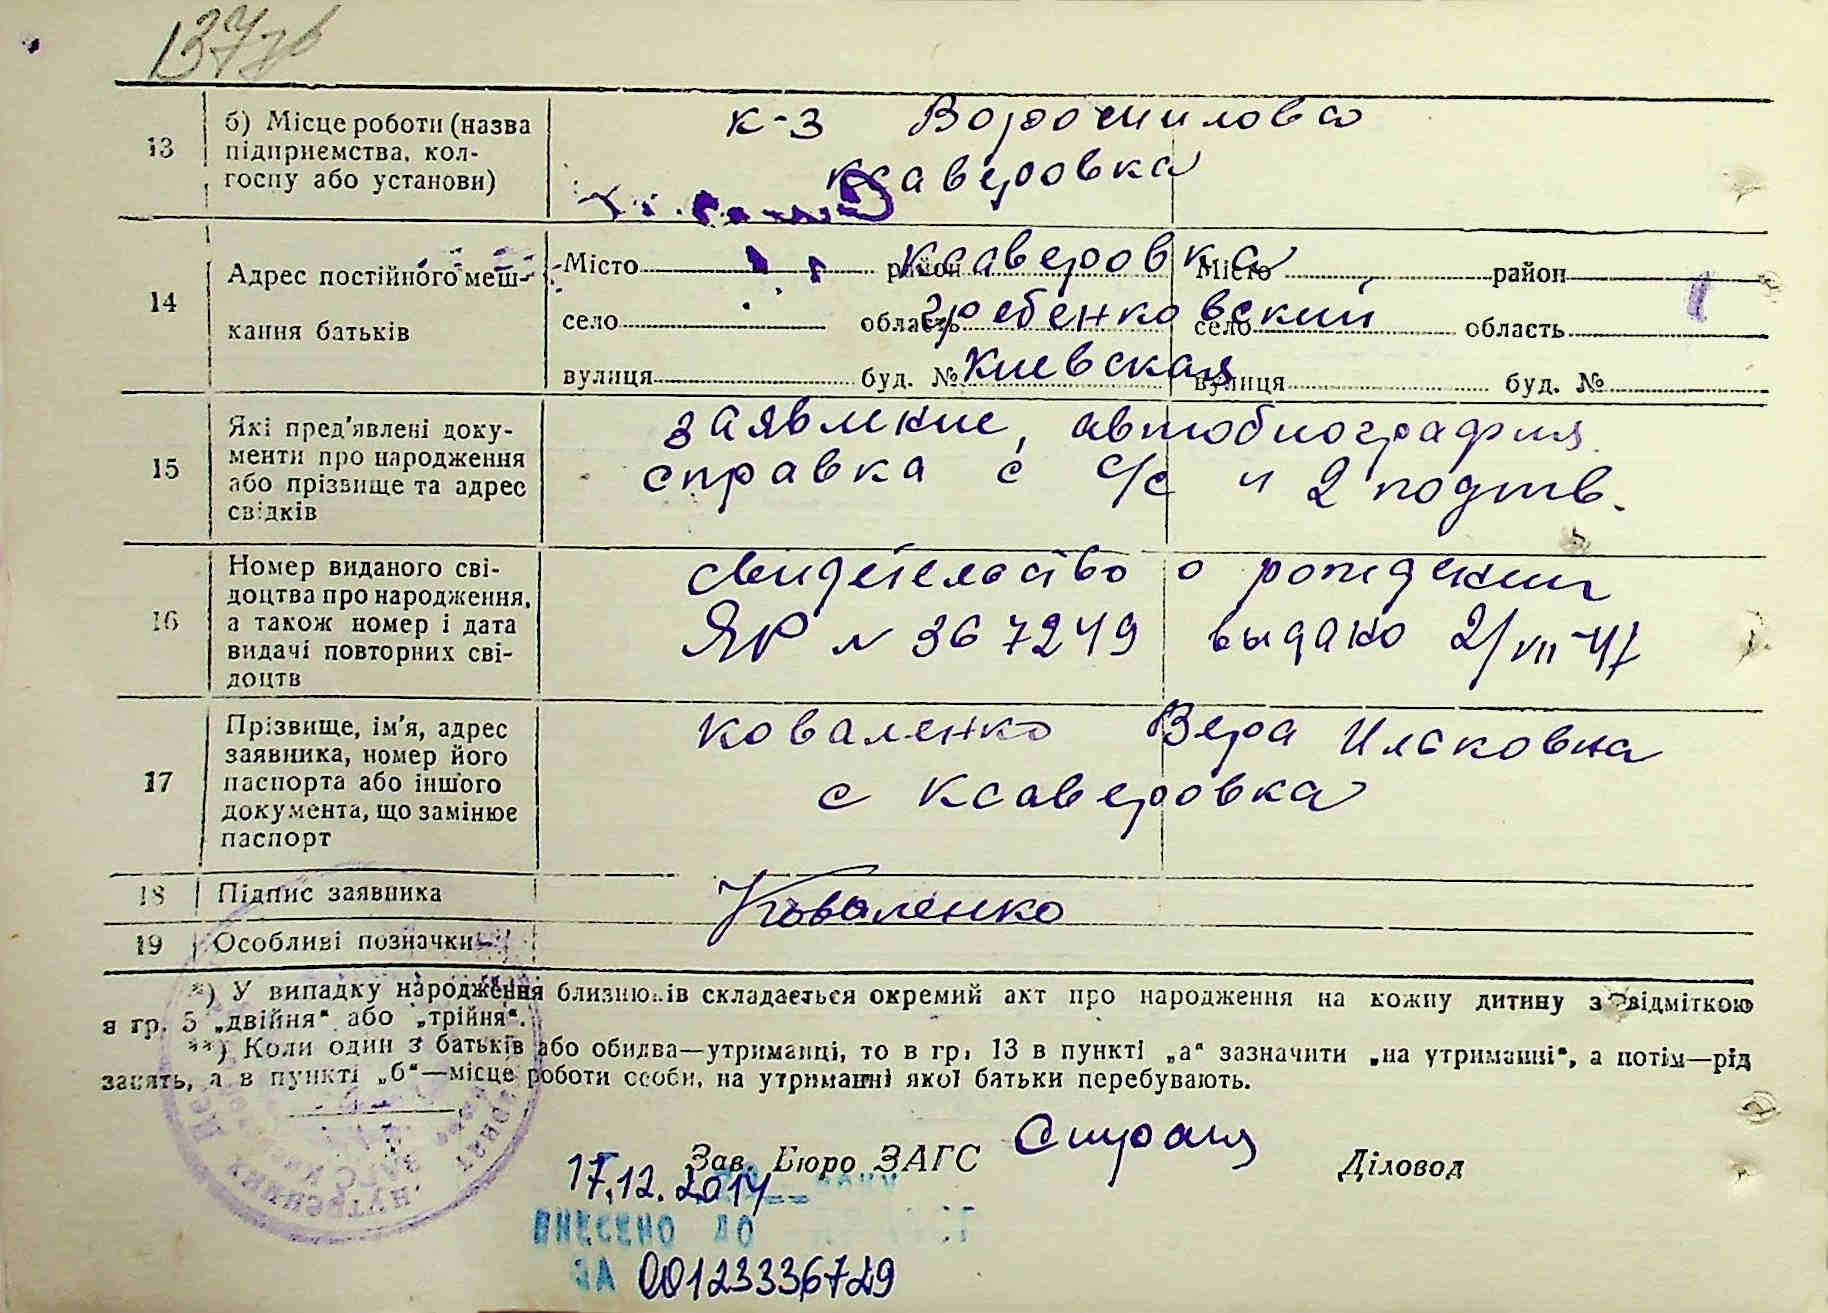 13 б) Місце роботи (назва підприємства, колгоспу або установи)
к-з Ворошилова
Ксаверовка
14 Адрес постійного мешкання батьків
Місто район Місто район
село область село область
вулиця буд. № вулиця буд. №
Ксаверовка
Гребенковский
Киевская
15 Які пред'явлені документи про народження або прізвище та адрес свідків
заявление, автобиография
справка с с/с и 2 подтв.
16 Номер виданого свідоцтва про народження, а також номер і дата видачі повторних свідоцтв
свидетельство о рождении
ЯР N 367249 выдано 2/VII-47
17 Прізвище, ім'я, адрес заявника, номер його паспорта або іншого документа, що замінює паспорт
Коваленко Вера Исаковна
с Ксаверовка
18 Підпис заявника
Коваленко
19 Особливі позначки
*) У випадку народження близнюків складається окремий акт про народження на кожну дитину з відміткою
в гр. 5 „двійня“ або „трійня“.
**) Коли один з батьків або обидва—утриманці, то в гр. 13 в пункті „а“ зазначити „на утриманні“, а потім—рід
занять, а в пункті „б“—місце роботи особи, на утриманні якої батьки перебувають.
Зав. Бюро ЗАГС
Діловод
17.12.2014
ВНЕСЕНО ДО
ЗА 00123336729